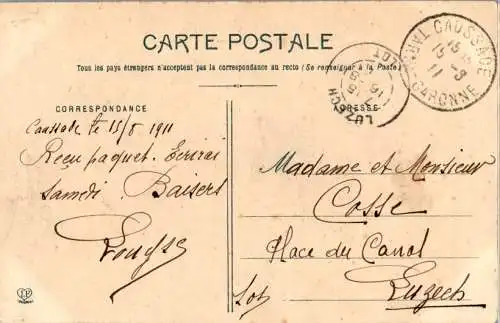 CARTE POSTALE
Tous les pays étrangers n'acceptent pas la correspondance au recto (Se renseigner à la Poste)
CORRESPONDANCE
ADRESSE
Caussade le 15/8 1911
Reçu paquet. Ecrirai
Samedi Baisers
Madame et Monsieur
Cosse
Place du Canal
Luzech
Lot
CAUSSADE
TARN
GARONNE
15
11
LUZECH
LOT